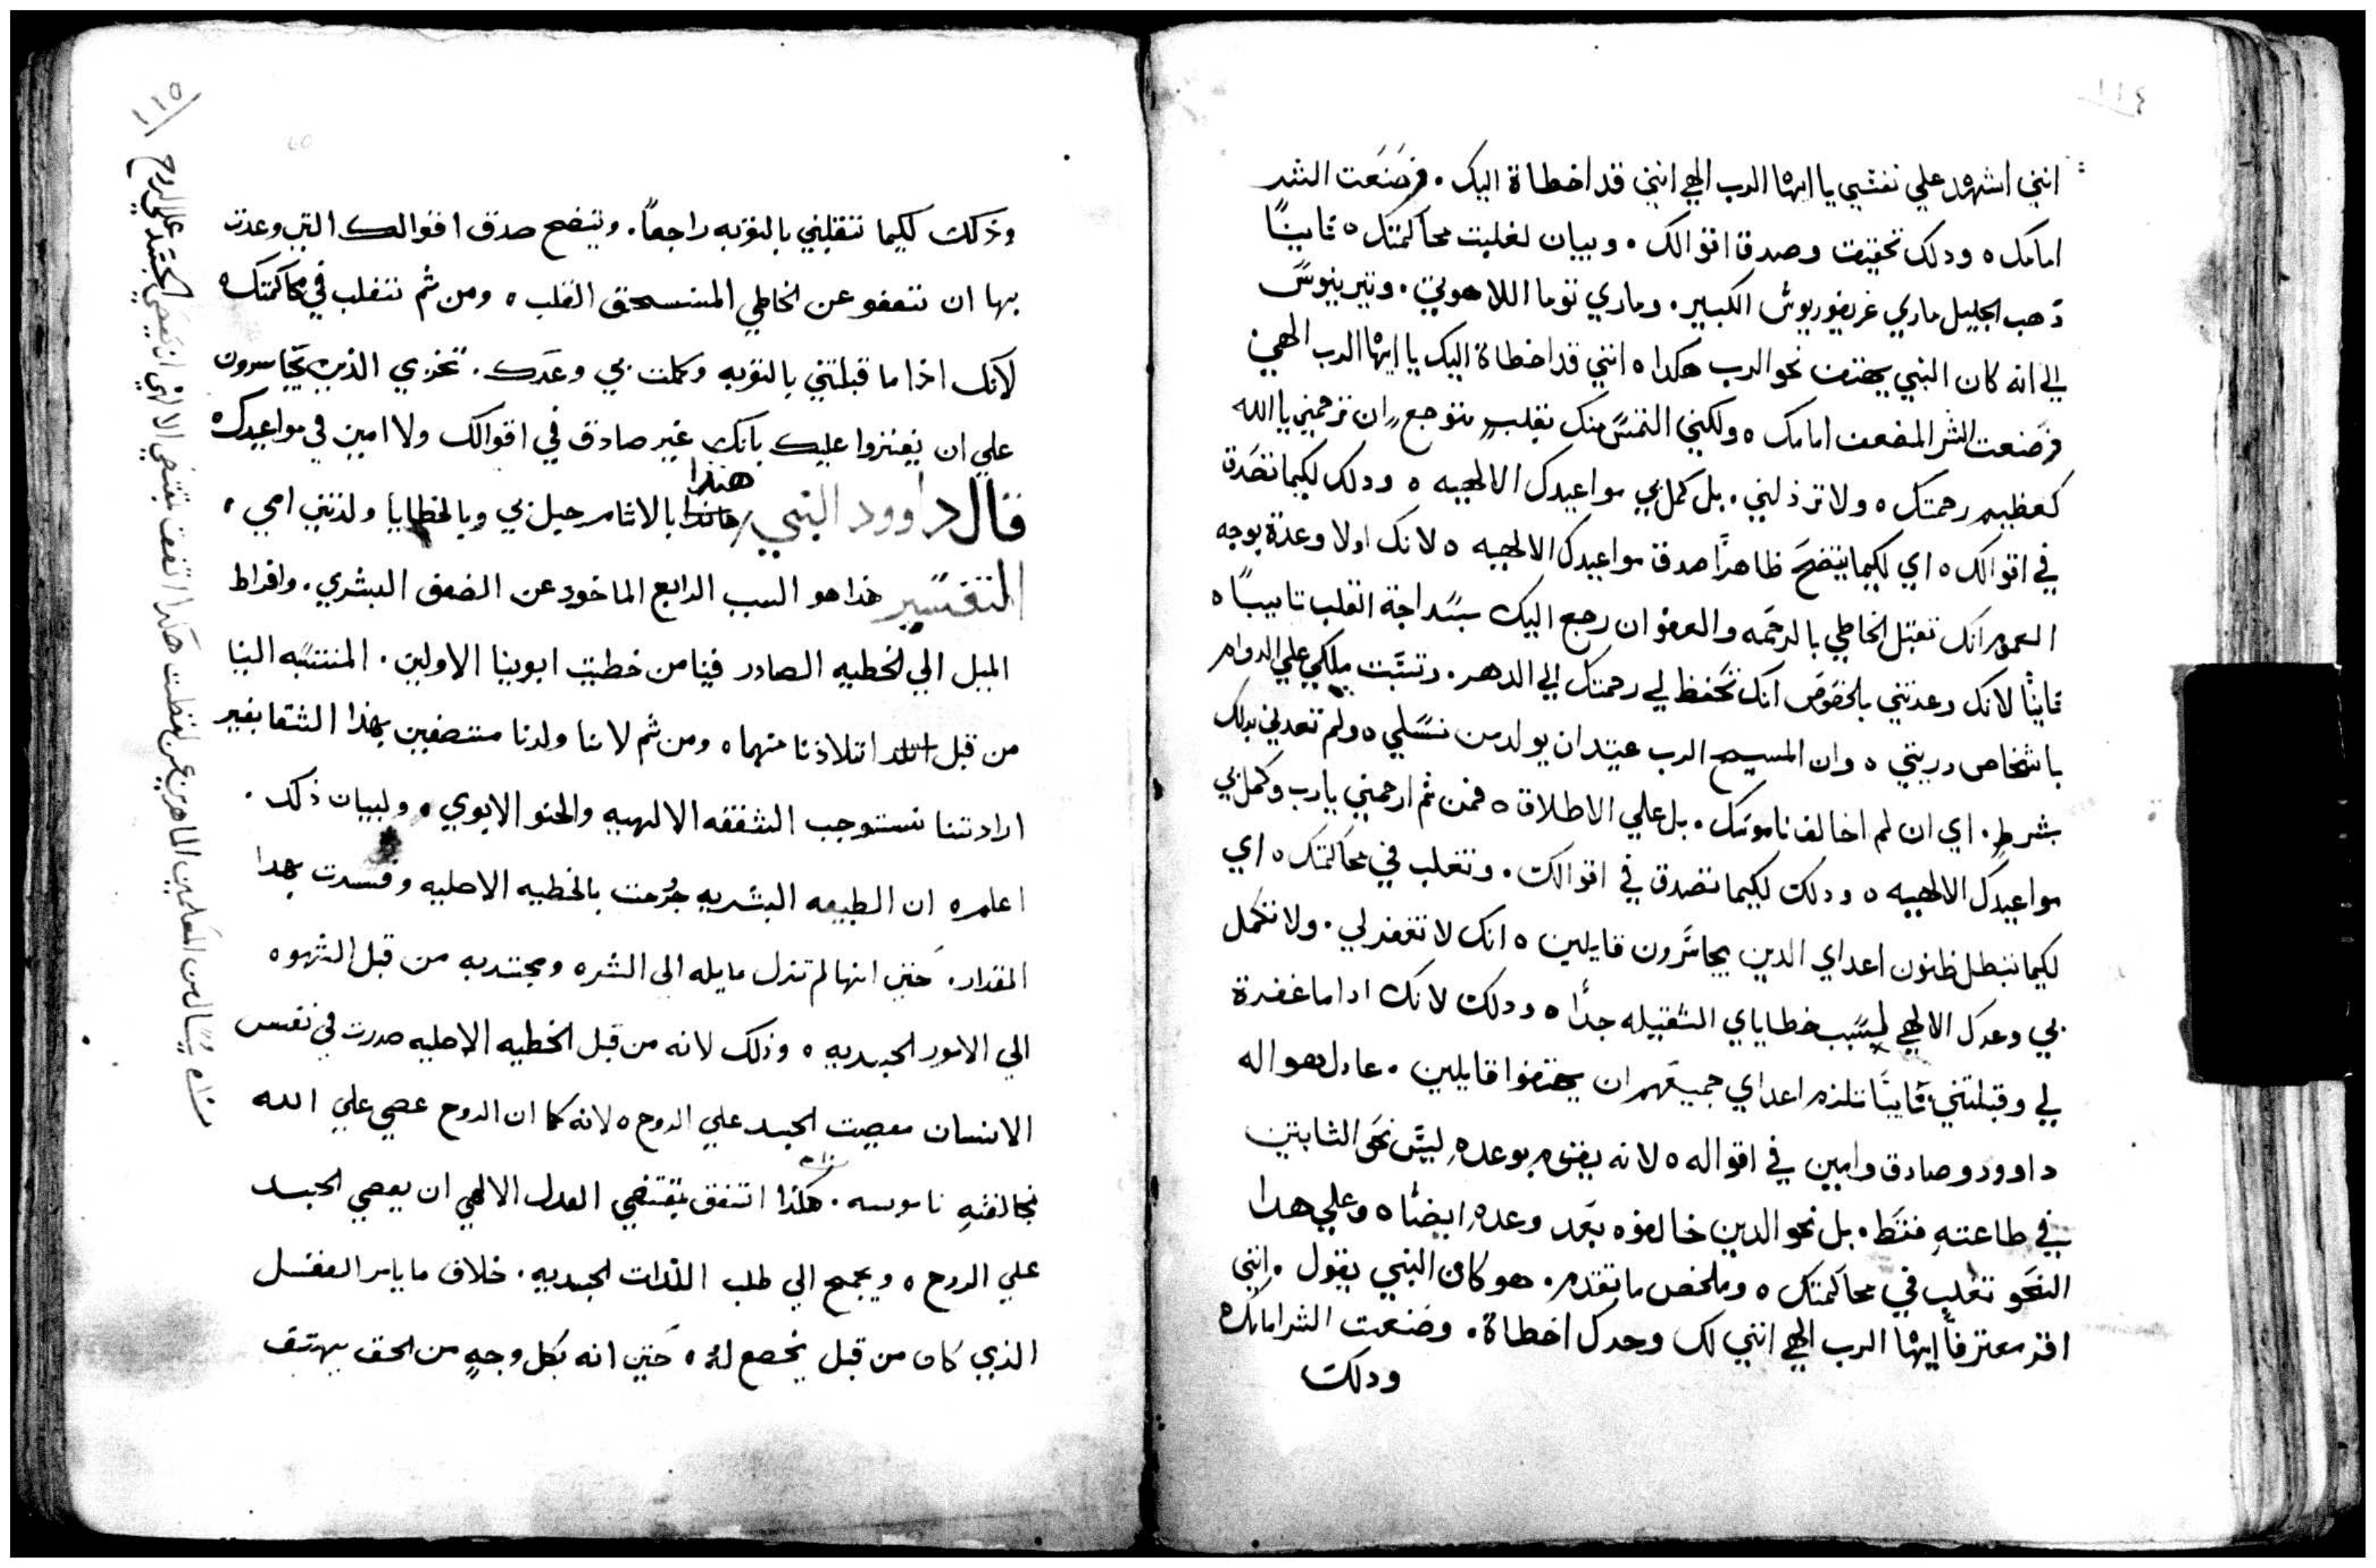 ١١٤
انني اشهد علي نفسي يا ايها الرب الهي انني قد اخطاة اليك. فصنعت الشر
امامك ٥ ودلك تحقيقت وصدق اقوالك. وبيان لغلبت محاكمتك ٥ ثانيًا
دهب الجليل ماري غريغوريوس الكبير. وماري توما اللاهوتي. وتيرينوس
الي انه كان النبي يهتف نحو الرب هكدا ٥ انني قد اخطاة اليك يا ايها الرب الهي
فصنعت الشر المضعف امامك ٥ ولكني التمس منك بقلبٍ متوجعٍ ان ترحمني يا الله
كعظيم رحمتك ٥ ولا ترذلني. بل كمل بي مواعيدك الالهيه ٥ ودلك لكيما تصدق
في اقوالك ٥ اي لكيما يتضح ظاهرًا صدق مواعيدك الالهيه ٥ لانك اولا وعدة بوجه
العموم انك تقبل الخاطي بالرحمه والعفو ان رجع اليك بسداجة القلب تايبًا ٥
ثانيًا لانك وعدتني بالخصوص انك تحفظ لي رحمتك الي الدهر. وتتبت ملكي علي الدوام
باشخاص دريتي ٥ وان المسيح الرب عتيد ان يولد من نسلي ٥ ولم تعدني بدلك
بشرط. اي ان لم اخالف ناموسك. بل علي الاطلاق ٥ فمن ثم ارحمني يارب وكمل بي
مواعيدك الالهيه ٥ ودلك لكيما تصدق في اقوالك. وتغلب في محاكمتك ٥ اي
لكيما تبطل ظنون اعداي الدين يجاسرون قايلين ٥ انك لا تغفر لي. ولا تكمل
بي وعدك الالهي لسبب خطاياي الثقيله جدًا ٥ ودلك لانك ادا ما غفرة
لي وقبلتني تايبًا تلزم اعداي جميعهم ان يهتفوا قايلين. عادل هو اله
داوود وصادق وامين في اقواله ٥ لانه يفي بوعده ليس نحو الثابتين
في طاعته فقط. بل نحو الدين خالفوه بعد وعده ايضًا ٥ وعلي هدا
النحو تغلب في محاكمتك ٥ وملخص ما تقدم. هو كان النبي يقول. انني
اقر معترفاً ايها الرب الهي انني لك وحدك اخطاة. وصنعت الشر امامك ٥
ودلك
١١٥
وذلك لكيما تقبلني بالتوبه راجعاً. ويتضح صدق اقوالك التي وعدت
بها ان تعفو عن الخاطي المنسحق القلب ٥ ومن ثم تغلب في محاكمتك ٥
لانك اذا ما قبلتني بالتوبه وكملت بي وعدك. تخزي الذين يتجاسرون
علي ان يفتروا عليك بانك غير صادق في اقوالك ولا امين في مواعيدك ٥
قال داوود النبي هنذا بالاثام حبل بي وبالخطايا ولدتني امي ٥
التفسير هذا هو السبب الرابع الماخود عن الضعف البشري. وافراط
الميل الي الخطيه الصادر فينا من خطيت ابوينا الاولين. المنتسبه الينا
من قبل اتلاذنا منهما ٥ ومن ثم لاننا ولدنا متصفين بهذا الشقا بغير
ارادتنا نستوجب الشفقه الالهيه والحنو الابوي ٥ ولبيان ذلك.
اعلم ٥ ان الطبيعه البشريه جُرحت بالخطيه الاصليه وفسدت بهدا
المقدار. حتي انها لم تزل مايله الي الشره ومجتدبه من قبل الشهوه
الي الامور الجسديه ٥ وذلك لانه من قبل الخطيه الاصليه صدرت في نفس
الانسان معصيت الجسد علي الروح ٥ لانه كما ان الروح عصي علي الله
بمخالفتهِ ناموسه. هكذا اتفق بمقتضي العدل الالهي ان يعصي الجسد
علي الروح ٥ ويجمح الي طلب اللذات الجسديه. خلاف ما يامر العقل
الذي كان من قبل يخضع لهُ ٥ حتي انه بكل وجهٍ من الحق يهتف
هكدا اتفق بمقتضي الالهي ان يعصي الجسد علي الروح